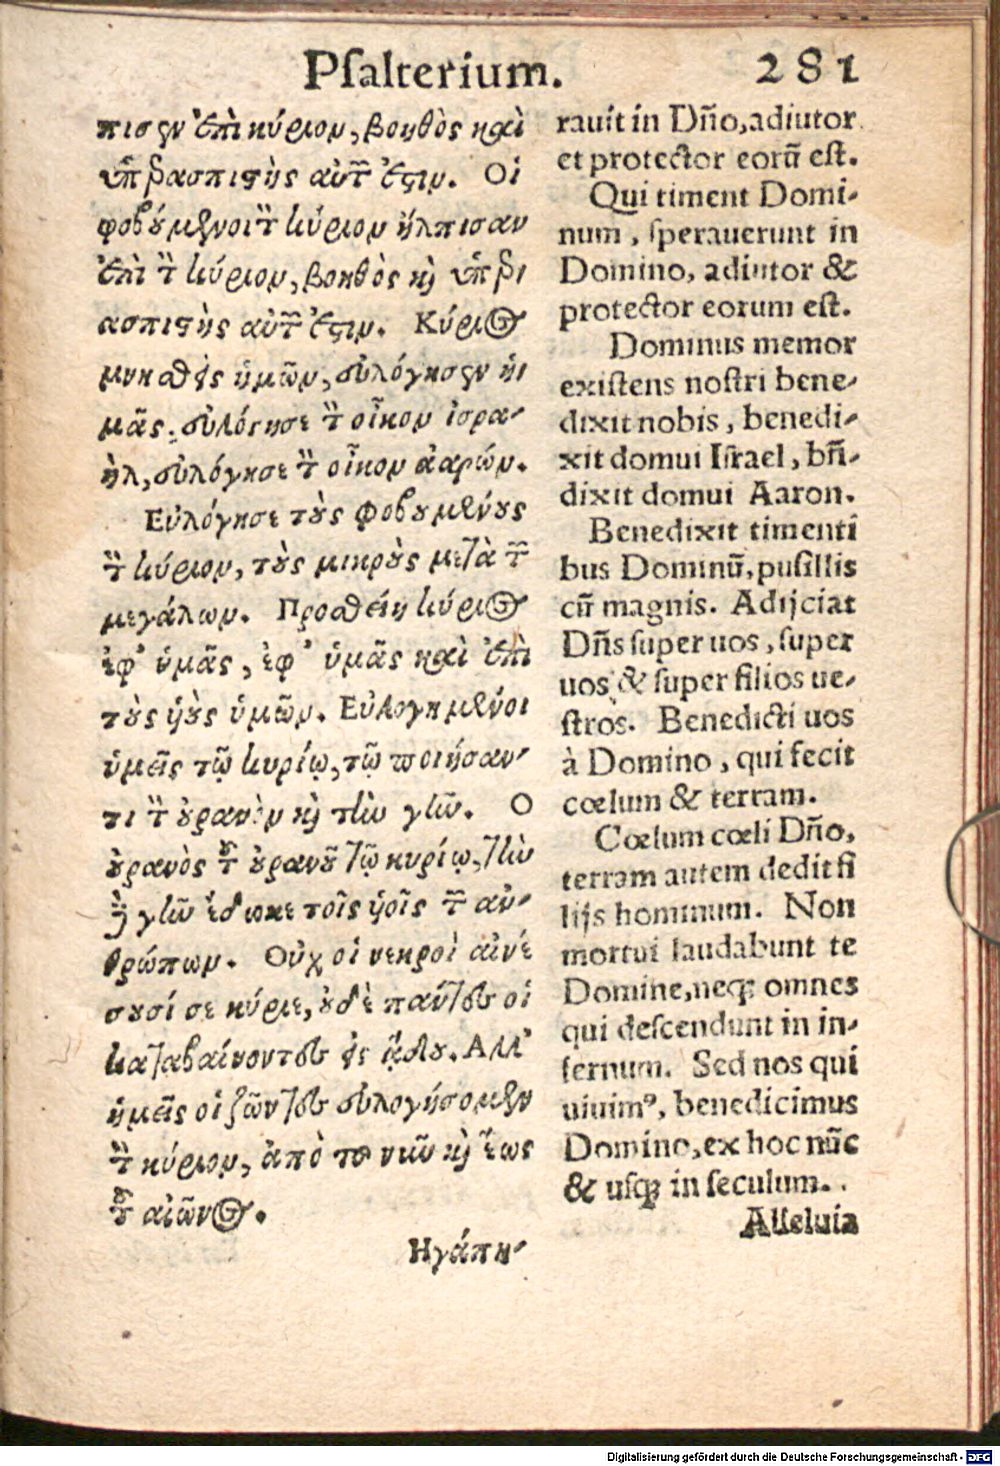 Psalterium. 281
πισεν ἐπὶ κύριον, βοηθὸς καὶ
ὑπερασπιστὴς αὐτῶν ἐστιν. Οἱ
φοβούμενοι τὸν κύριον ἤλπισαν
ἐπὶ τὸν κύριον, βοηθὸς καὶ ὑπερ-
ασπιστὴς αὐτῶν ἐστιν. Κύριος
μνησθεὶς ἡμῶν, εὐλόγησεν ἡ-
μᾶς, εὐλόγησε τὸν οἶκον ἰσρα-
ὴλ, εὐλόγησε τὸν οἶκον ἀαρών.
Εὐλόγησε τοὺς φοβουμένους
τὸν κύριον, τοὺς μικροὺς μετὰ τῶν
μεγάλων. Προσθείη κύριος
ἐφ' ὑμᾶς, ἐφ' ὑμᾶς καὶ ἐπὶ
τοὺς υἱοὺς ὑμῶν. Εὐλογημένοι
ὑμεῖς τῷ κυρίῳ, τῷ ποιήσαν-
τι τὸν οὐρανὸν καὶ τὴν γῆν. Ο
οὐρανὸς τοῦ οὐρανοῦ τῷ κυρίῳ, τὴν
δὲ γῆν ἔδωκε τοῖς υἱοῖς τῶν ἀν-
θρώπων. Οὐχ οἱ νεκροὶ αἰνέ
σουσί σε κύριε, οὐδὲ πάντες οἱ
καταβαίνοντες εἰς ᾅδου. Αλλ'
ἡμεῖς οἱ ζῶντες εὐλογήσομεν
τὸν κύριον, ἀπὸ τοῦ νῦν καὶ ἕως
τοῦ αἰῶνος.
Ηγάπη-
rauit in Dño, adiutor
et protector eorū est.
Qui timent Domi-
num, sperauerunt in
Domino, adiutor &
protector eorum est.
Dominus memor
existens nostri bene-
dixit nobis, benedi-
xit domui Israel, bñ-
dixit domui Aaron.
Benedixit timenti
bus Dominū, pusillis
cū magnis. Adijciat
Dñs super uos, super
uos & super filios ue-
stros. Benedicti uos
à Domino, qui fecit
cœlum & terram.
Cœlum cœli Dño,
terram autem dedit fi
lijs hominum. Non
mortui laudabunt te
Domine, neqꝫ omnes
qui descendunt in in-
fernum. Sed nos qui
uiuimꝰ, benedicimus
Domino, ex hoc nūc
& usqꝫ in seculum.
Alleluia
Digitalisierung gefördert durch die Deutsche Forschungsgemeinschaft - DFG